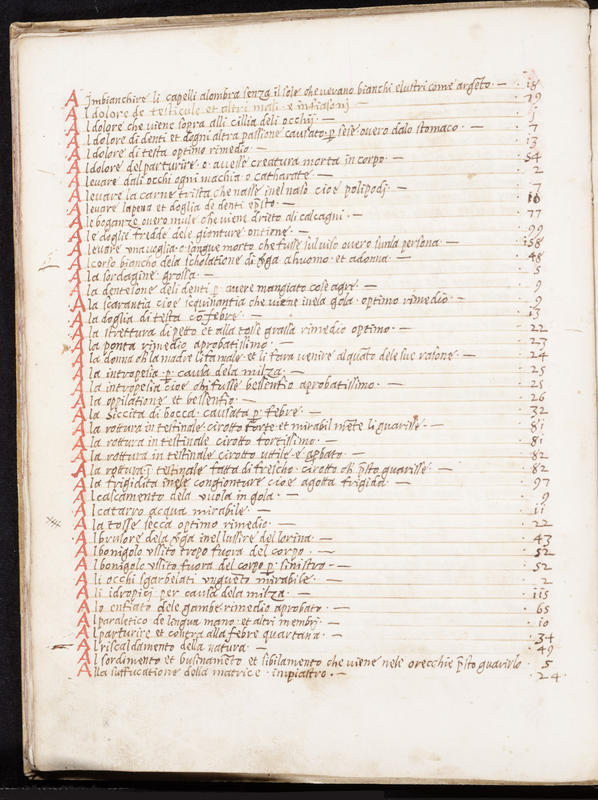 A Jmbianchire li capelli alombra senza il sole che verano bianchi elustri come argeto · — · 18
A l dolore de testicule et altri mali · e infiasonj — · 79
A l dolore che viene sopra alli cillia deli occhij · — · 1
A l dolore di denti et dogni altra passione causato p seie overo dalo stomaco · — · 7
A l dolore di testa optimo rimedio · — · 13
A l dolore del parturire · o · avesse creatura morta in corpo · — · 54
A levare dali occhi ogni machia o catharate · — · 2
A levare la carne trista che nasse inel naso cioe polipodj · — · 7
A levare la pena et doglia de denti psto · — · 10
A le boganze overo mule che viene drieto ali calcagni · — · 77
A le doglie fredde dele gionture ontione · — · 99
A levare una voglia o sangue morto che fusse sul viso overo sun la persona · — · 158
A l corso biancho dela scholatione di ahuomo · et adonna · — · 48
A la sordagine grossa · — · 5
A la dentesone deli denti p avere mangiato cose agre · — · 9
A la scarantia cioe squinantia che viene inela gola · optimo rimedio · — · 9
A la doglia di testa cō febre · — · 13
A la strettura di petto et alla tosse grassa rimedio optimo · — · 22
A la ponta rimedio aprobatissimo · — · 23
A la donna ch la madre li famale · et li fara venire al quāto dele sue rasone · — · 24
A la intropesia · p · causa dela milza · — · 25
A la intropesia cioe chi fusse bessentio aprobatissimo · — · 25
A la oppilatione et bessentio · — · 26
A la Siccita di bocca · causata p febre · — · 32
A la rottura intestinale cirotto forte et mirabil mēte li guarisse · — · 81
A la rottura intestinale cirotto fortissimo · — · 81
A la rottura in testinale cirotto utile e apbato · — · 82
A la rottura j testinale fatta di frescho · cirotto ch psto guarisse · — · 82
A la frigidita inele congionture cioe agotta frigida · — · 97
A l calcamento dela vuola in gola · — · 9
A l catarro acqua mirabile · — · 11
A la tosse secca optimo rimedio · — · 22
A l brusore dela inel lussire del lorina · — · 43
A l bonigolo ussito tropo fuora del corpo · — · 52
A l bonigolo ussito fuora del corpo p sinistro · — · 52
A li occhi sgarbelati unguēto mirabile · — · 2
A li idropici per causa dela milza · — · 115
A lo enfiato dele gambe rimedio aprobato · — · 65
A l paraletico de lengua mano · et altri membrj · — · 10
A l parturire et contra alla febre quartana · — · 34
A l riscaldamento della natura · — · 49
A l sordimento et businamēto et sibilamento che viene nele orecchie psto guarirlo · 5
A lla suffucatione della matrice · inpiastro · — · 24 ·